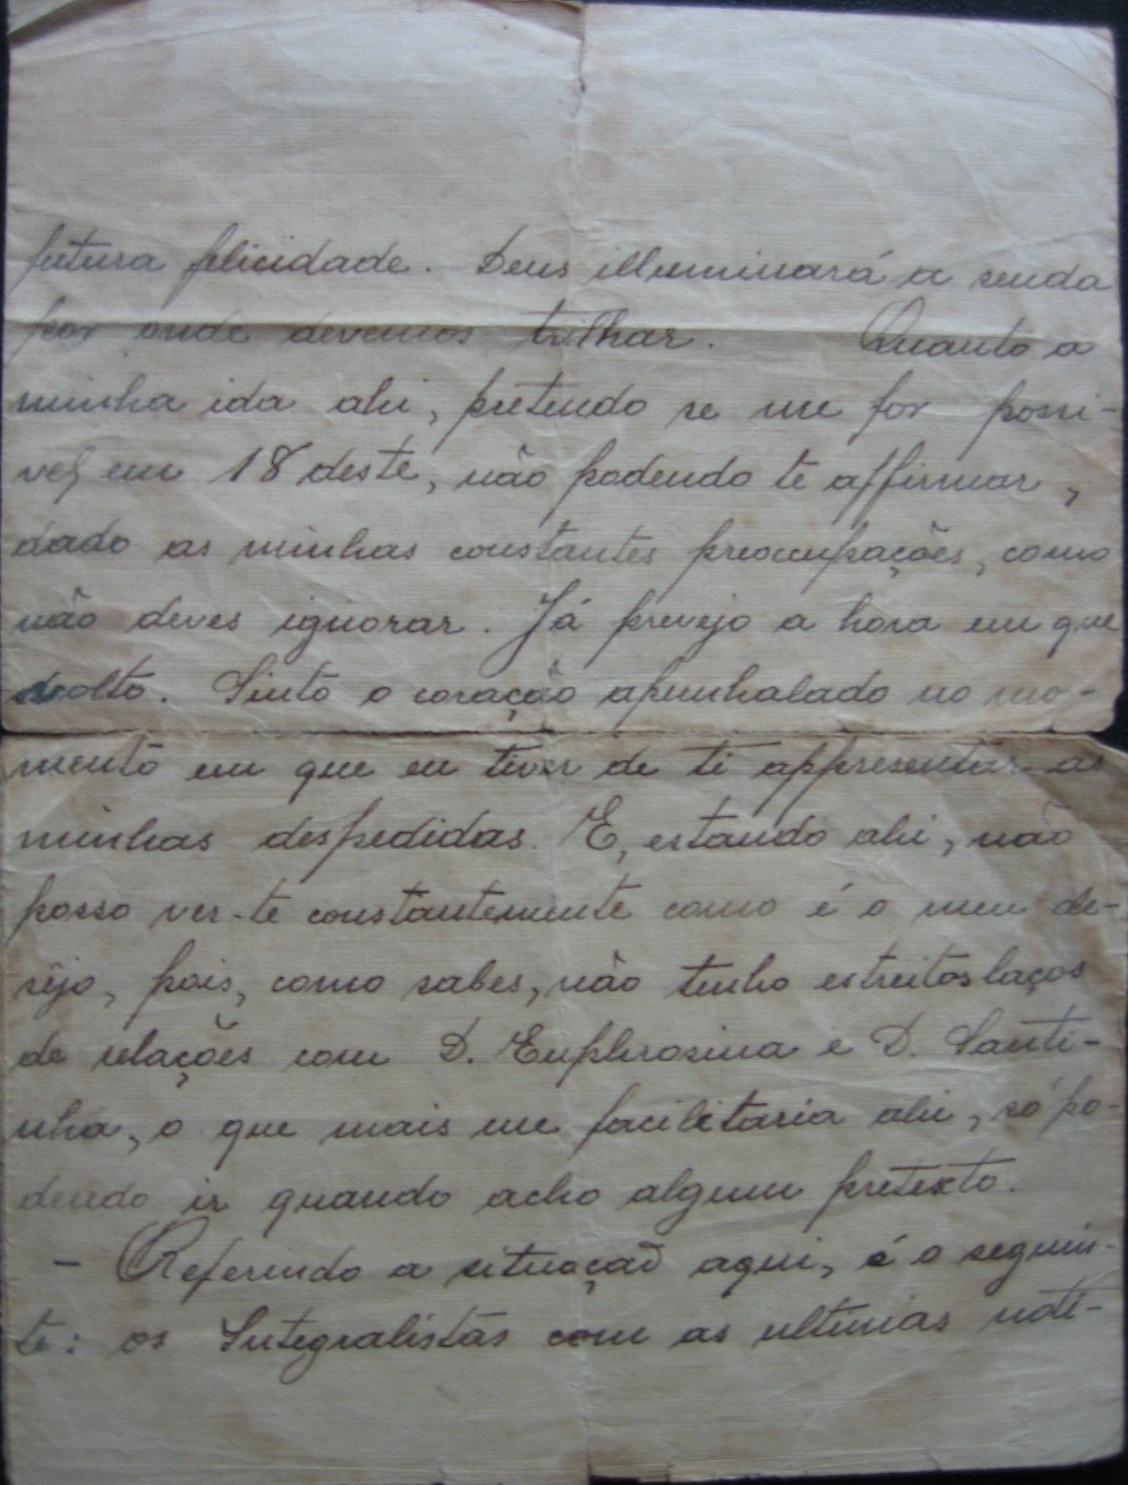 futura felicidade. Deus illuminará a senda
por onde devemos trilhar. Quanto a
minha ida ahi, pretendo se me for possi-
vel em 18 deste, não podendo te affirmar,
dado as minhas constantes preoccupações, como
não deves ignorar. Já prevejo a hora em que
volto. Sinto o coração apunhalado no mo-
mento em que eu tiver de ti appresentar as
minhas despedidas. E, estando ahi, não
posso ver-te constantemente como é o meu de-
sêjo, pois, como sabes, não tenho estreitos laços
de relações com D. Euphrosina e D. Santi-
nha, o que mais me facilitaria ahi, só po-
dendo ir quando acho algum pretexto.
- Referindo a situação aqui, é o seguin-
te: os Integralistas com as ultimas noti-